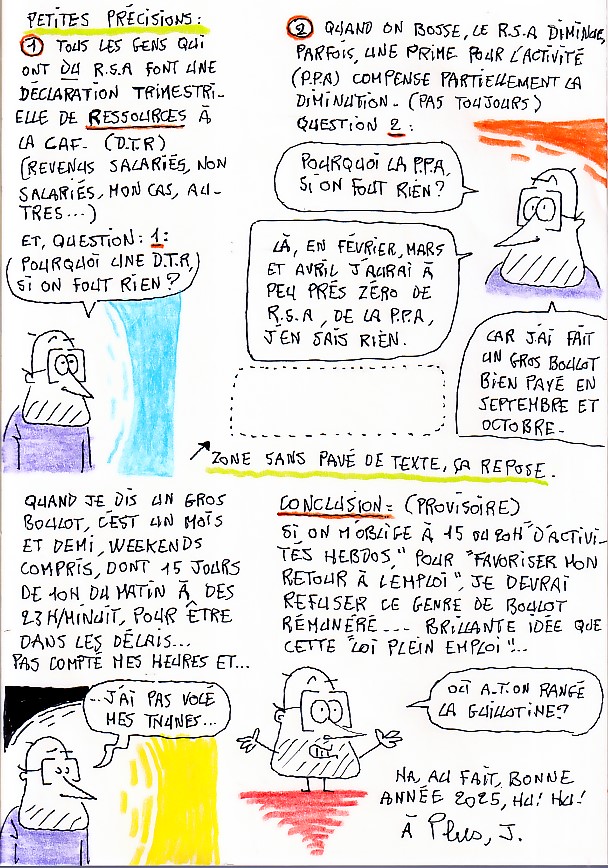 PETITES PRÉCISIONS:
1 TOUS LES GENS QUI
ONT DU R.S.A FONT UNE
DÉCLARATION TRIMESTRI-
ELLE DE RESSOURCES À
LA CAF. (D.T.R)
(REVENUS SALARIÉS, NON
SALARIÉS, MON CAS, AU-
TRES...)
ET, QUESTION: 1:
POURQUOI UNE D.T.R,
SI ON FOUT RIEN?
2 QUAND ON BOSSE, LE R.S.A DIMINUE,
PARFOIS, UNE PRIME POUR L'ACTIVITÉ
(P.P.A) COMPENSE PARTIELLEMENT LA
DIMINUTION. (PAS TOUJOURS)
QUESTION 2:
POURQUOI LA P.P.A,
SI ON FOUT RIEN?
LÀ, EN FÉVRIER, MARS
ET AVRIL J'AURAI À
PEU PRÈS ZÉRO DE
R.S.A, DE LA P.P.A,
J'EN SAIS RIEN.
CAR J'AI FAIT
UN GROS BOULOT
BIEN PAYÉ EN
SEPTEMBRE ET
OCTOBRE.
ZONE SANS PAVÉ DE TEXTE, ÇA REPOSE.
QUAND JE DIS UN GROS
BOULOT, C'EST UN MOIS
ET DEMI, WEEKENDS
COMPRIS, DONT 15 JOURS
DE 10H DU MATIN À DES
23H/MINUIT, POUR ÊTRE
DANS LES DÉLAIS...
PAS COMPTÉ MES HEURES ET...
...J'AI PAS VOLÉ
MES THUNES...
CONCLUSION: (PROVISOIRE)
SI ON M'OBLIGE À 15 OU 20H "D'ACTIVI-
TÉS HEBDOS," POUR "FAVORISER MON
RETOUR À L'EMPLOI", JE DEVRAI
REFUSER CE GENRE DE BOULOT
RÉMUNÉRÉ... BRILLANTE IDÉE QUE
CETTE "LOI PLEIN EMPLOI"!..
OÙ A.T.ON RANGÉ
LA GUILLOTINE?
HA, AU FAIT, BONNE
ANNÉE 2025, HU! HU!
À Plus, J.